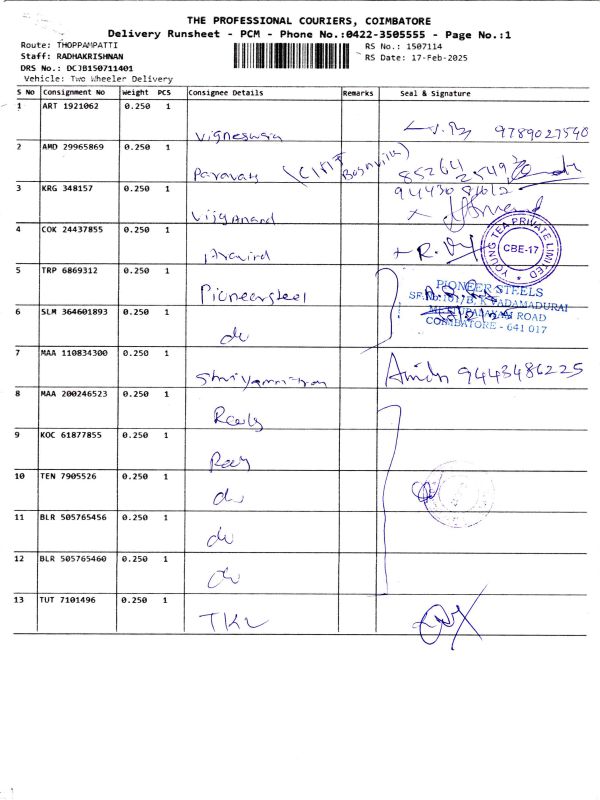 THE PROFESSIONAL COURIERS, COIMBATORE
Delivery Runsheet - PCM - Phone No.:0422-3505555 - Page No.:1
Route: THOPPAMPATTI RS No.: 1507114
Staff: RADHAKRISHNAN RS Date: 17-Feb-2025
DRS No.: DCJB150711401
Vehicle: Two Wheeler Delivery
S No Consignment No Weight PCS Consignee Details Remarks Seal & Signature
1 ART 1921062 0.250 1
9789027540
2 AMD 29965869 0.250 1
3 KRG 348157 0.250 1
Vijyanand
4 COK 24437855 0.250 1
Aravind
YOUNG TEA PRIVATE LIMITED
CBE-17
5 TRP 6869312 0.250 1
Pioneersteel
PIONEER STEELS
VADAMADURAI
ROAD
COIMBATORE - 641 017
6 SLM 364601893 0.250 1
do
7 MAA 110834300 0.250 1
9443486225
8 MAA 200246523 0.250 1
9 KOC 61877855 0.250 1
10 TEN 7905526 0.250 1
do
11 BLR 505765456 0.250 1
do
12 BLR 505765460 0.250 1
do
13 TUT 7101496 0.250 1
TKL